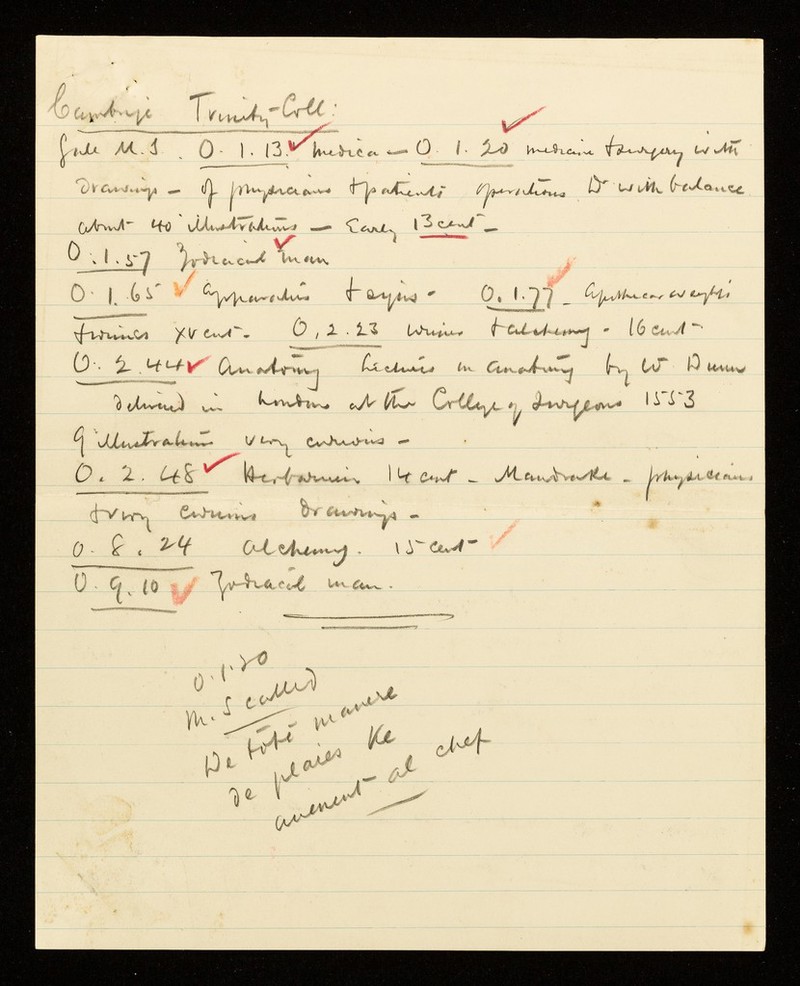 Cambrige Trinity-Coll:
Gale M.S. O. 1. 13. medica — O. 1. 20 medicine & surgery with
drawings — of physicians & patients operations Dr with balance
about 40 illustrations — Early 13 cent —
O. 1. 57 Zodiacal man
O. 1. 65 apparatus & signs - O. 1. 77 - apothecar weights
XV cent - O. 2. 23 & alchemy - 16 cent -
O. 2. 44 Anatomy Lectures on anatomy by W
delivered in London at the College of Surgeons 1553
9 illustrations very curious -
O. 2. 48 14 cent - Mandrake - physicians
& very curious drawings -
O. 8. 24 alchemy. 15 cent -
O. 9. 10 Zodiacal man.
O. 1. 20
M.S called
De tōtē manere
de plaies Ke
avenent al chef